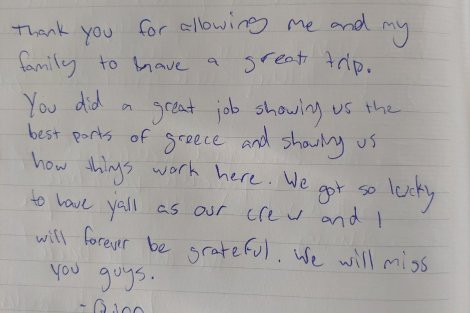 Thank you for allowing me and my
family to have a great trip.
You did a great job showing us the
best parts of greece and showing us
how things work here. We got so lucky
to have y'all as our crew and I
will forever be grateful. We will miss
you guys.